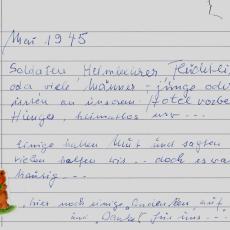 Mai 1945
Soldaten, Heimkehrer, Flüchtli
oder viele Männer - junge oder
an unserem Hotel vorbei
Hunger, heimatlos usw ---
Einige hatten Mut und sagten
vielen halfen wir -- doch es wa
traurig ---
hier noch einige auf
und "Danke" für uns ---